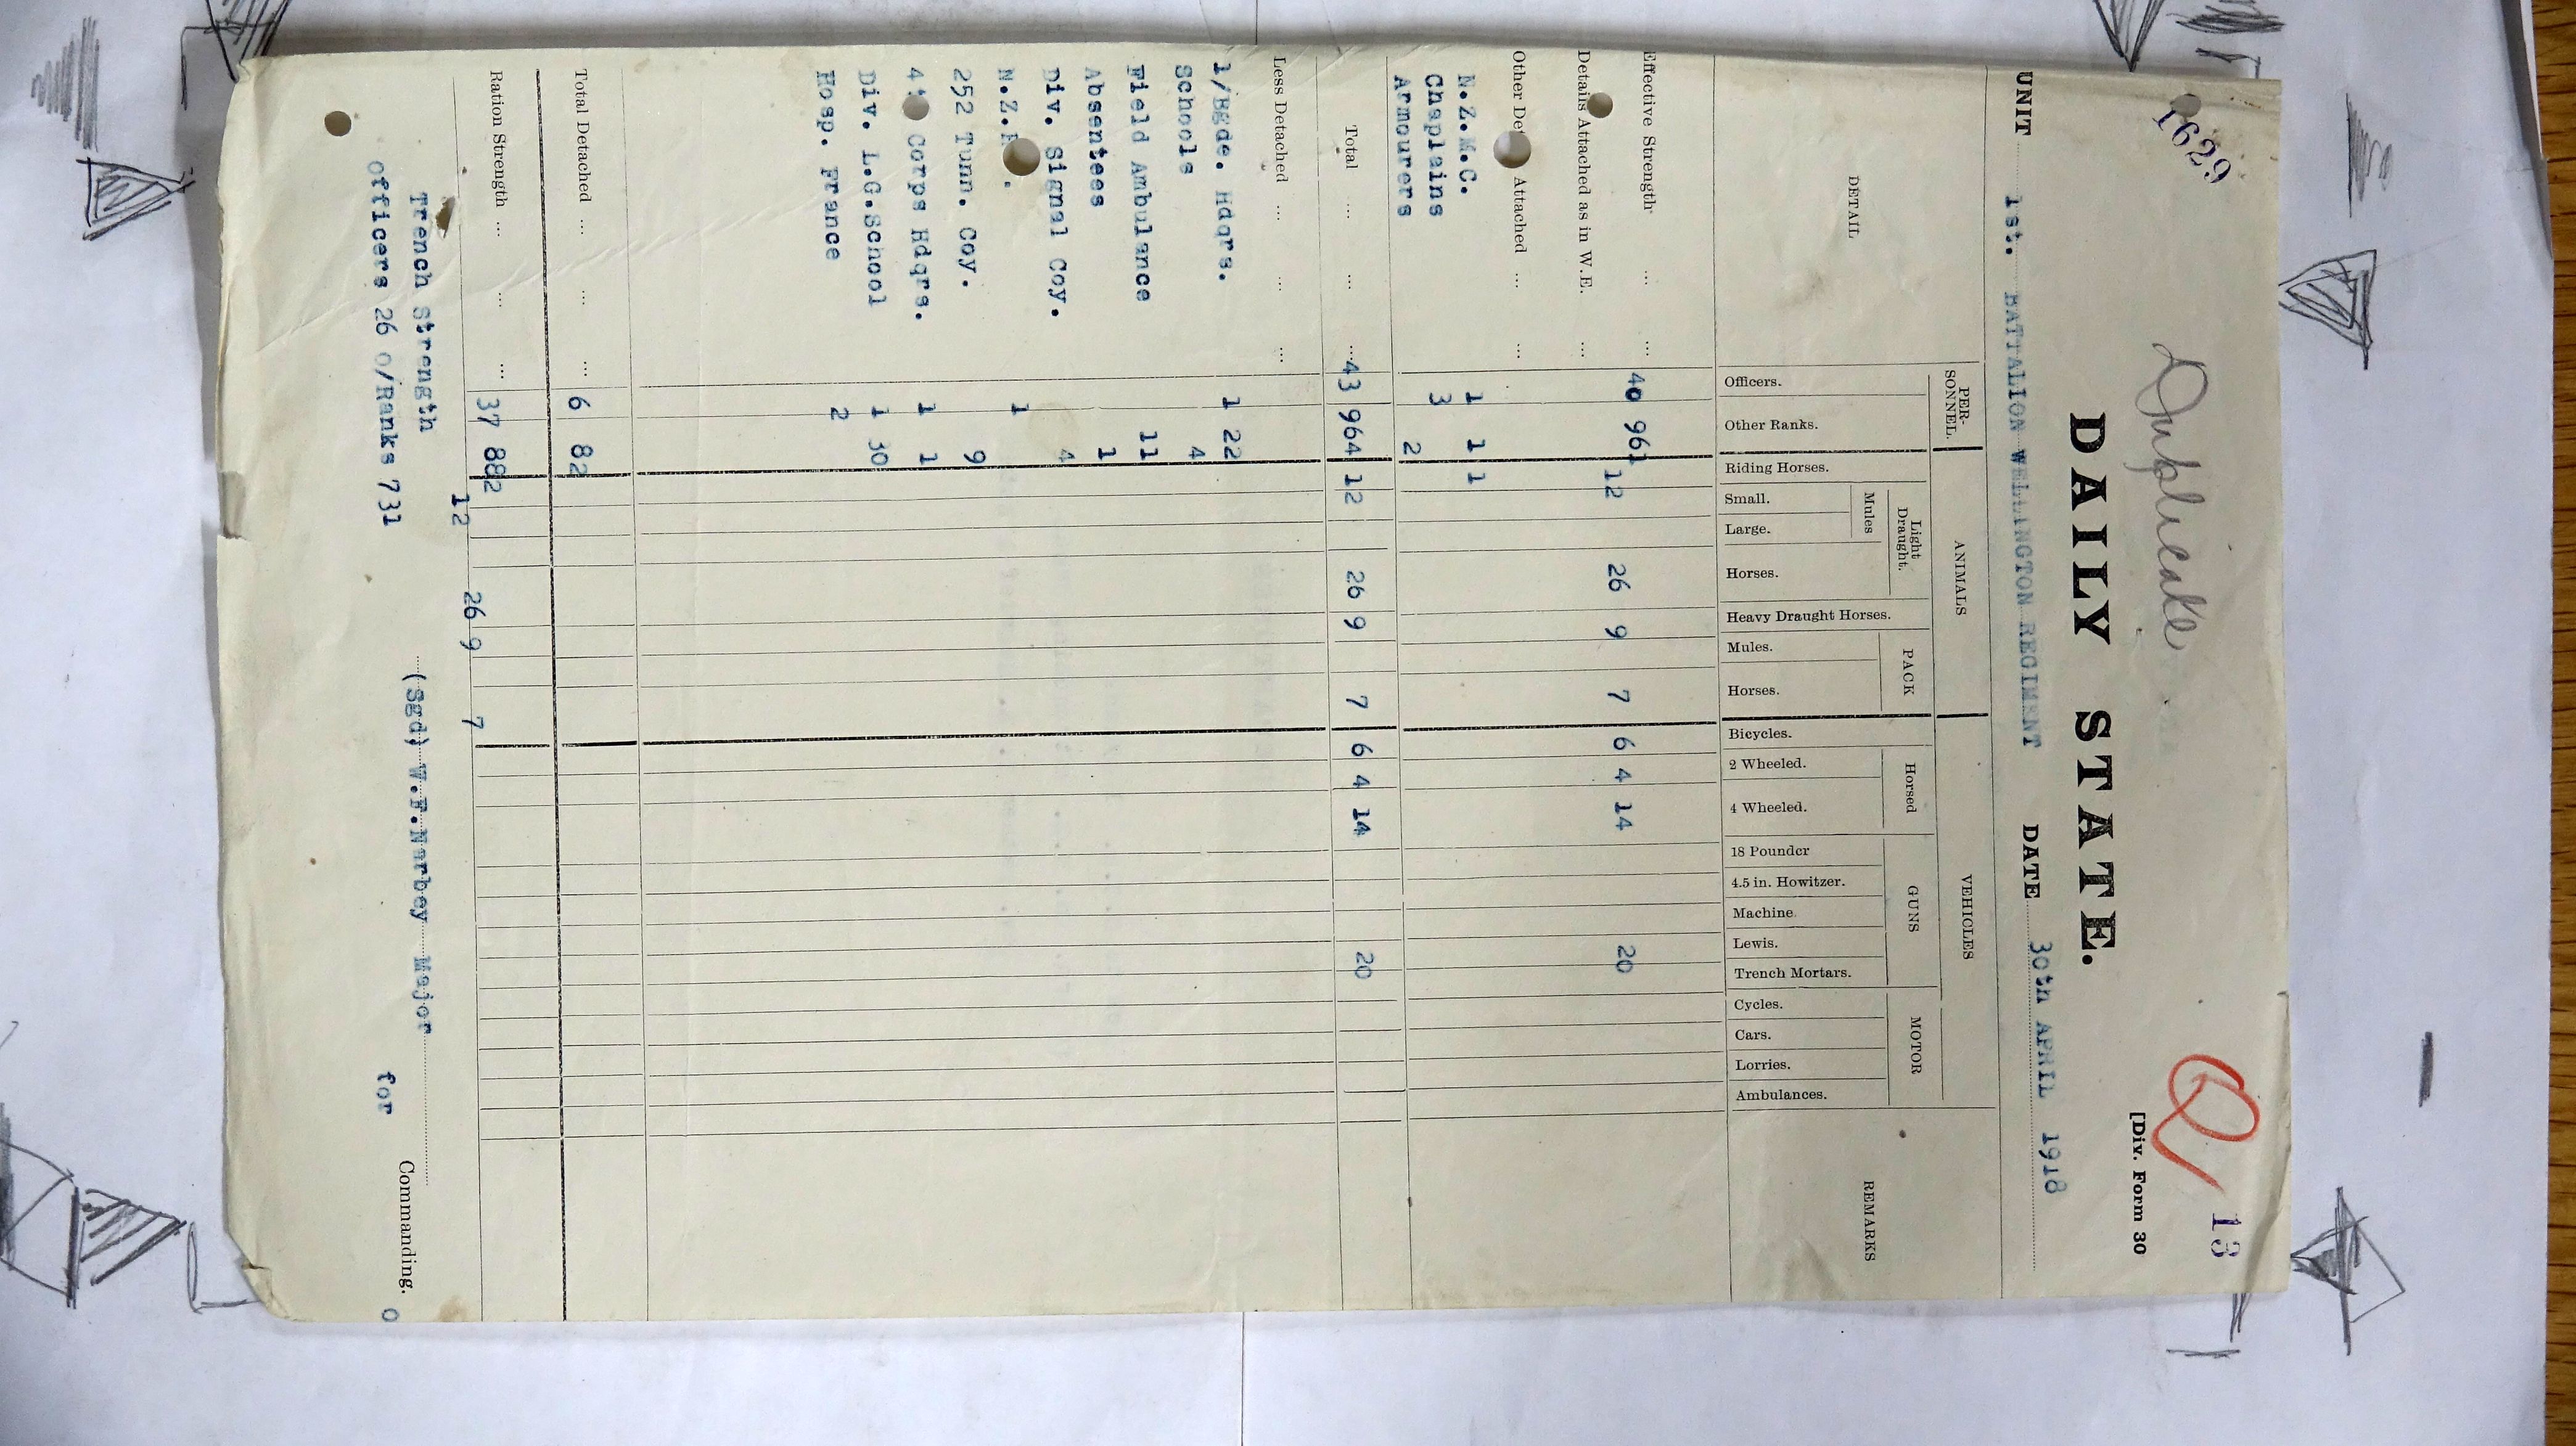 1629
Duplicate
13
[Div. Form 30
DAILY STATE.
UNIT 1st. BATTALION WELLINGTON REGIMENT DATE 30th APRIL 1918
DETAIL PERSONNEL. ANIMALS VEHICLES REMARKS
Light Draught. PACK Horsed GUNS MOTOR
Mules
Officers. Other Ranks. Riding Horses. Small. Large. Horses. Heavy Draught Horses. Mules. Horses. Bicycles. 2 Wheeled. 4 Wheeled. 18 Pounder 4.5 in. Howitzer. Machine. Lewis. Trench Mortars. Cycles. Cars. Lorries. Ambulances.
Effective Strength ... ... 40 961 12 26 9 7 6 4 14 20
Details Attached as in W.E. ...
Other De Attached ... ...
N.Z.M.C. 1 1 1
Chaplains 3
Armourers 2
Total ... ... ... 43 964 12 26 9 7 6 4 14 20
Less Detached ... ... ...
1/Bgde. Hdqrs. 1 22
Schools 4
Field Ambulance 11
Absentees 1
Div. Signal Coy. 4
N.Z. . 1
252 Tunn. Coy. 9
4 Corps Hdqrs. 1 1
Div. L.G.School 1 30
Hosp. France 2
Total Detached ... ... ... 6 82
Ration Strength ... ... ... 37 882 12 26 9 7
Trench Strength
Officers 26 O/Ranks 731
(Sgd) W.F.Narbey Major
for Commanding.